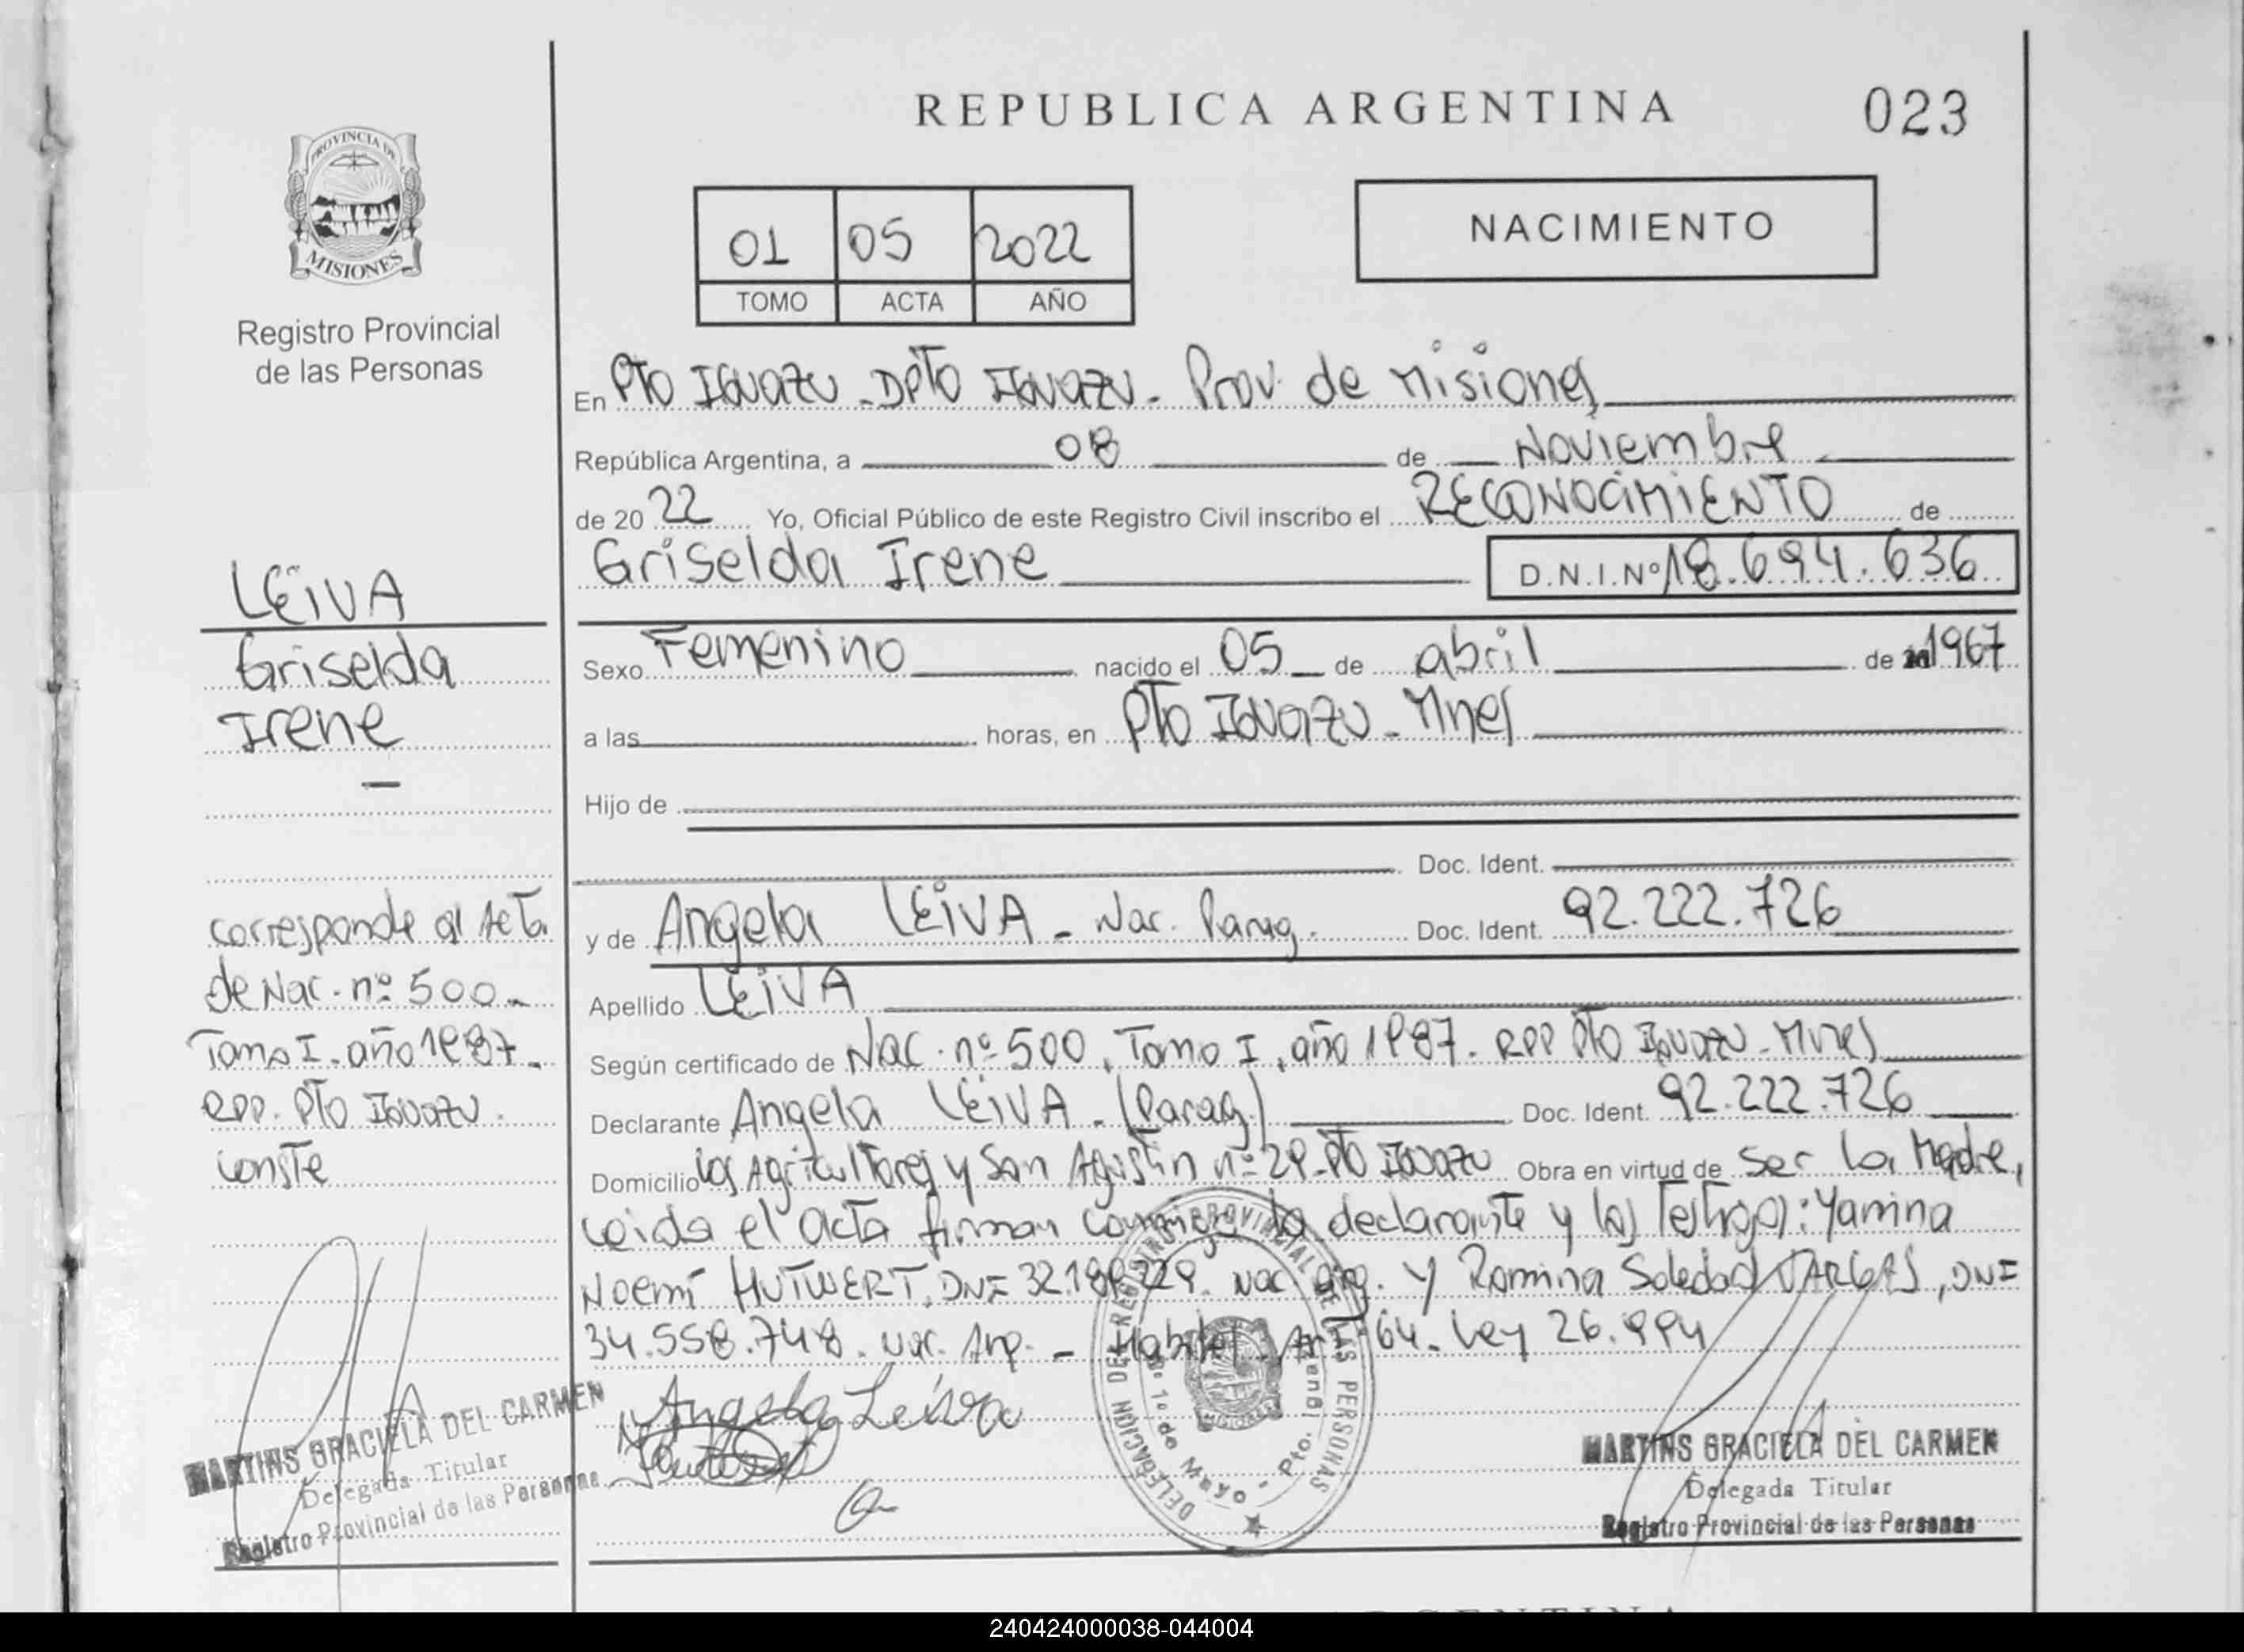 REPUBLICA ARGENTINA
023
PROVINCIA DE
MISIONES
Registro Provincial
de las Personas
01 05 2022
TOMO ACTA AÑO
NACIMIENTO
En Pto Iguazu - Dpto Iguazu - Prov. de Misiones
República Argentina, a 08 de Noviembre
de 20 22 Yo, Oficial Público de este Registro Civil inscribo el RECONOCIMIENTO de
Griselda Irene D.N.I.Nº 18.694.636
Sexo Femenino nacido el 05 de abril de 1967
a las horas, en Pto Iguazu - Mnes
Hijo de
Doc. Ident.
y de Angela LEIVA - Nac. Parag. Doc. Ident. 92.222.726
Apellido LEIVA
Según certificado de Nac. nº 500, Tomo I, año 1987. RPP Pto Iguazu - Mnes
Declarante Angela LEIVA - (Parag.) Doc. Ident. 92.222.726
Domicilio Los Agricultores y San Agustin nº 29 - Pto Iguazu Obra en virtud de ser la Madre,
Leida el acta firman conmigo la declarante y los Testigos: Yamina
Noemi HUTWERT, DNI 32.189.229. Nac. Arg. y Romina Soledad VARGAS, DNI
34.558.748. Nac. Arg. - Habilit. Art 64. Ley 26.994
LEIVA
Griselda
Irene
corresponde al Acta
de Nac. nº 500 -
Tomo I. año 1987 -
RPP. Pto Iguazu.
conste
Angela Leiva
DELEGACION DEL REGISTRO PROVINCIAL DE LAS PERSONAS
1º de Mayo - Pto.
MARTINS GRACIELA DEL CARMEN
Delegada Titular
Registro Provincial de las Personas
MARTINS GRACIELA DEL CARMEN
Delegada Titular
Registro Provincial de las Personas
240424000038-044004